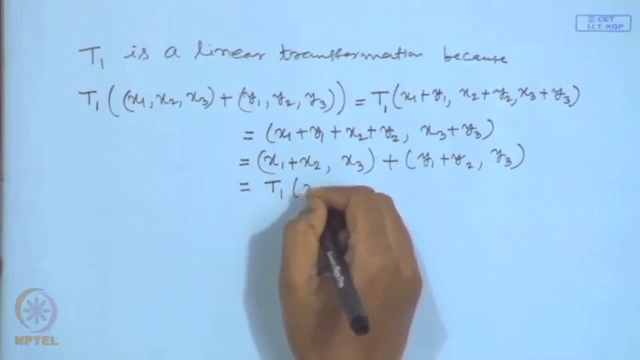 © CET
I.I.T. KGP
T₁ is a linear transformation because
T₁((x₁, x₂, x₃) + (y₁, y₂, y₃)) = T₁(x₁+y₁, x₂+y₂, x₃+y₃)
= (x₁+y₁+x₂+y₂, x₃+y₃)
= (x₁+x₂, x₃) + (y₁+y₂, y₃)
= T₁(
NPTEL